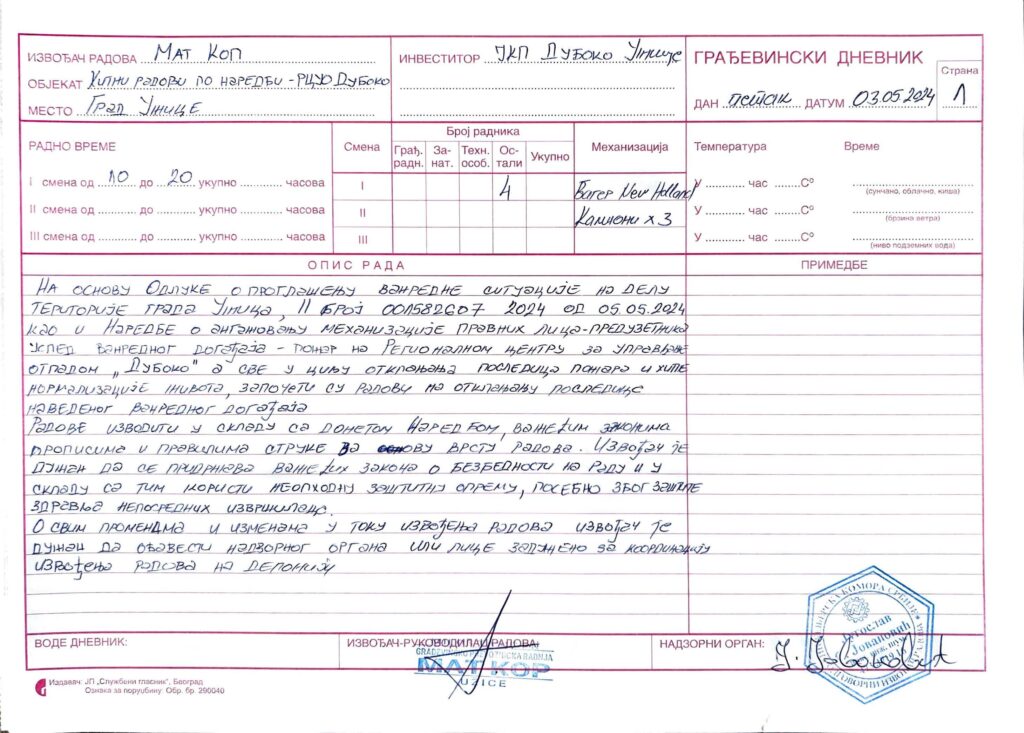 ИЗВОЂАЧ РАДОВА Мат Коп
ОБЈЕКАТ Хитни радови по наредби - РЦУО Дубоко
МЕСТО Град Ужице
ИНВЕСТИТОР ЈКП Дубоко Ужице
ГРАЂЕВИНСКИ ДНЕВНИК
ДАН петак ДАТУМ 03.05.2024
Страна
1
РАДНО ВРЕМЕ
I смена од 10 до 20 укупно часова
II смена од до укупно часова
III смена од до укупно часова
Смена
I
II
III
Број радника
Грађ. радн.
За-нат.
Техн. особ.
Ос-тали
Укупно
4
Механизација
Багер New Holland
Камиони x 3
Температура
Време
У час C°
(сунчано, облачно, киша)
У час C°
(брзина ветра)
У час C°
(ниво подземних вода)
ОПИС РАДА
ПРИМЕДБЕ
На основу Одлуке о проглашењу ванредне ситуације на делу
територије града Ужица, II број 001582607 2024 од 05.05.2024
као и Наредбе о ангажовању механизације правних лица-предузетника
услед ванредног догађаја - пожар на Регионалном центру за управљање
отпадом „Дубоко" а све у циљу отклањања последица пожара и хитне
нормализације живота, започети су радови на отклањању последице
наведеног ванредног догађаја
Радове изводити у складу са донетом Наредбом, важећим законима
прописима и правилима струке за ову врсту радова. Извођач је
дужан да се придржава важећих закона о безбедности на раду и у
складу са тим користи неопходну заштитну опрему, посебно због заштите
здравља непосредних извршилаца.
О свим променама и изменама у току извођења радова извођач је
дужан да обавести надзорног органа или лице задужено за координацију
извођења радова на депонији
ВОДЕ ДНЕВНИК:
ИЗВОЂАЧ-РУКОВОДИЛАЦ РАДОВА:
MAT KOP
UŽICE
НАДЗОРНИ ОРГАН:
ИНЖЕЊЕРСКА КОМОРА СРБИЈЕ
Југослав
Јовановић
ОДГОВОРНИ ИЗВОЂАЧ
Издавач: ЈП „Службени гласник", Београд
Ознака за поруџбину Обр. бр. 290040